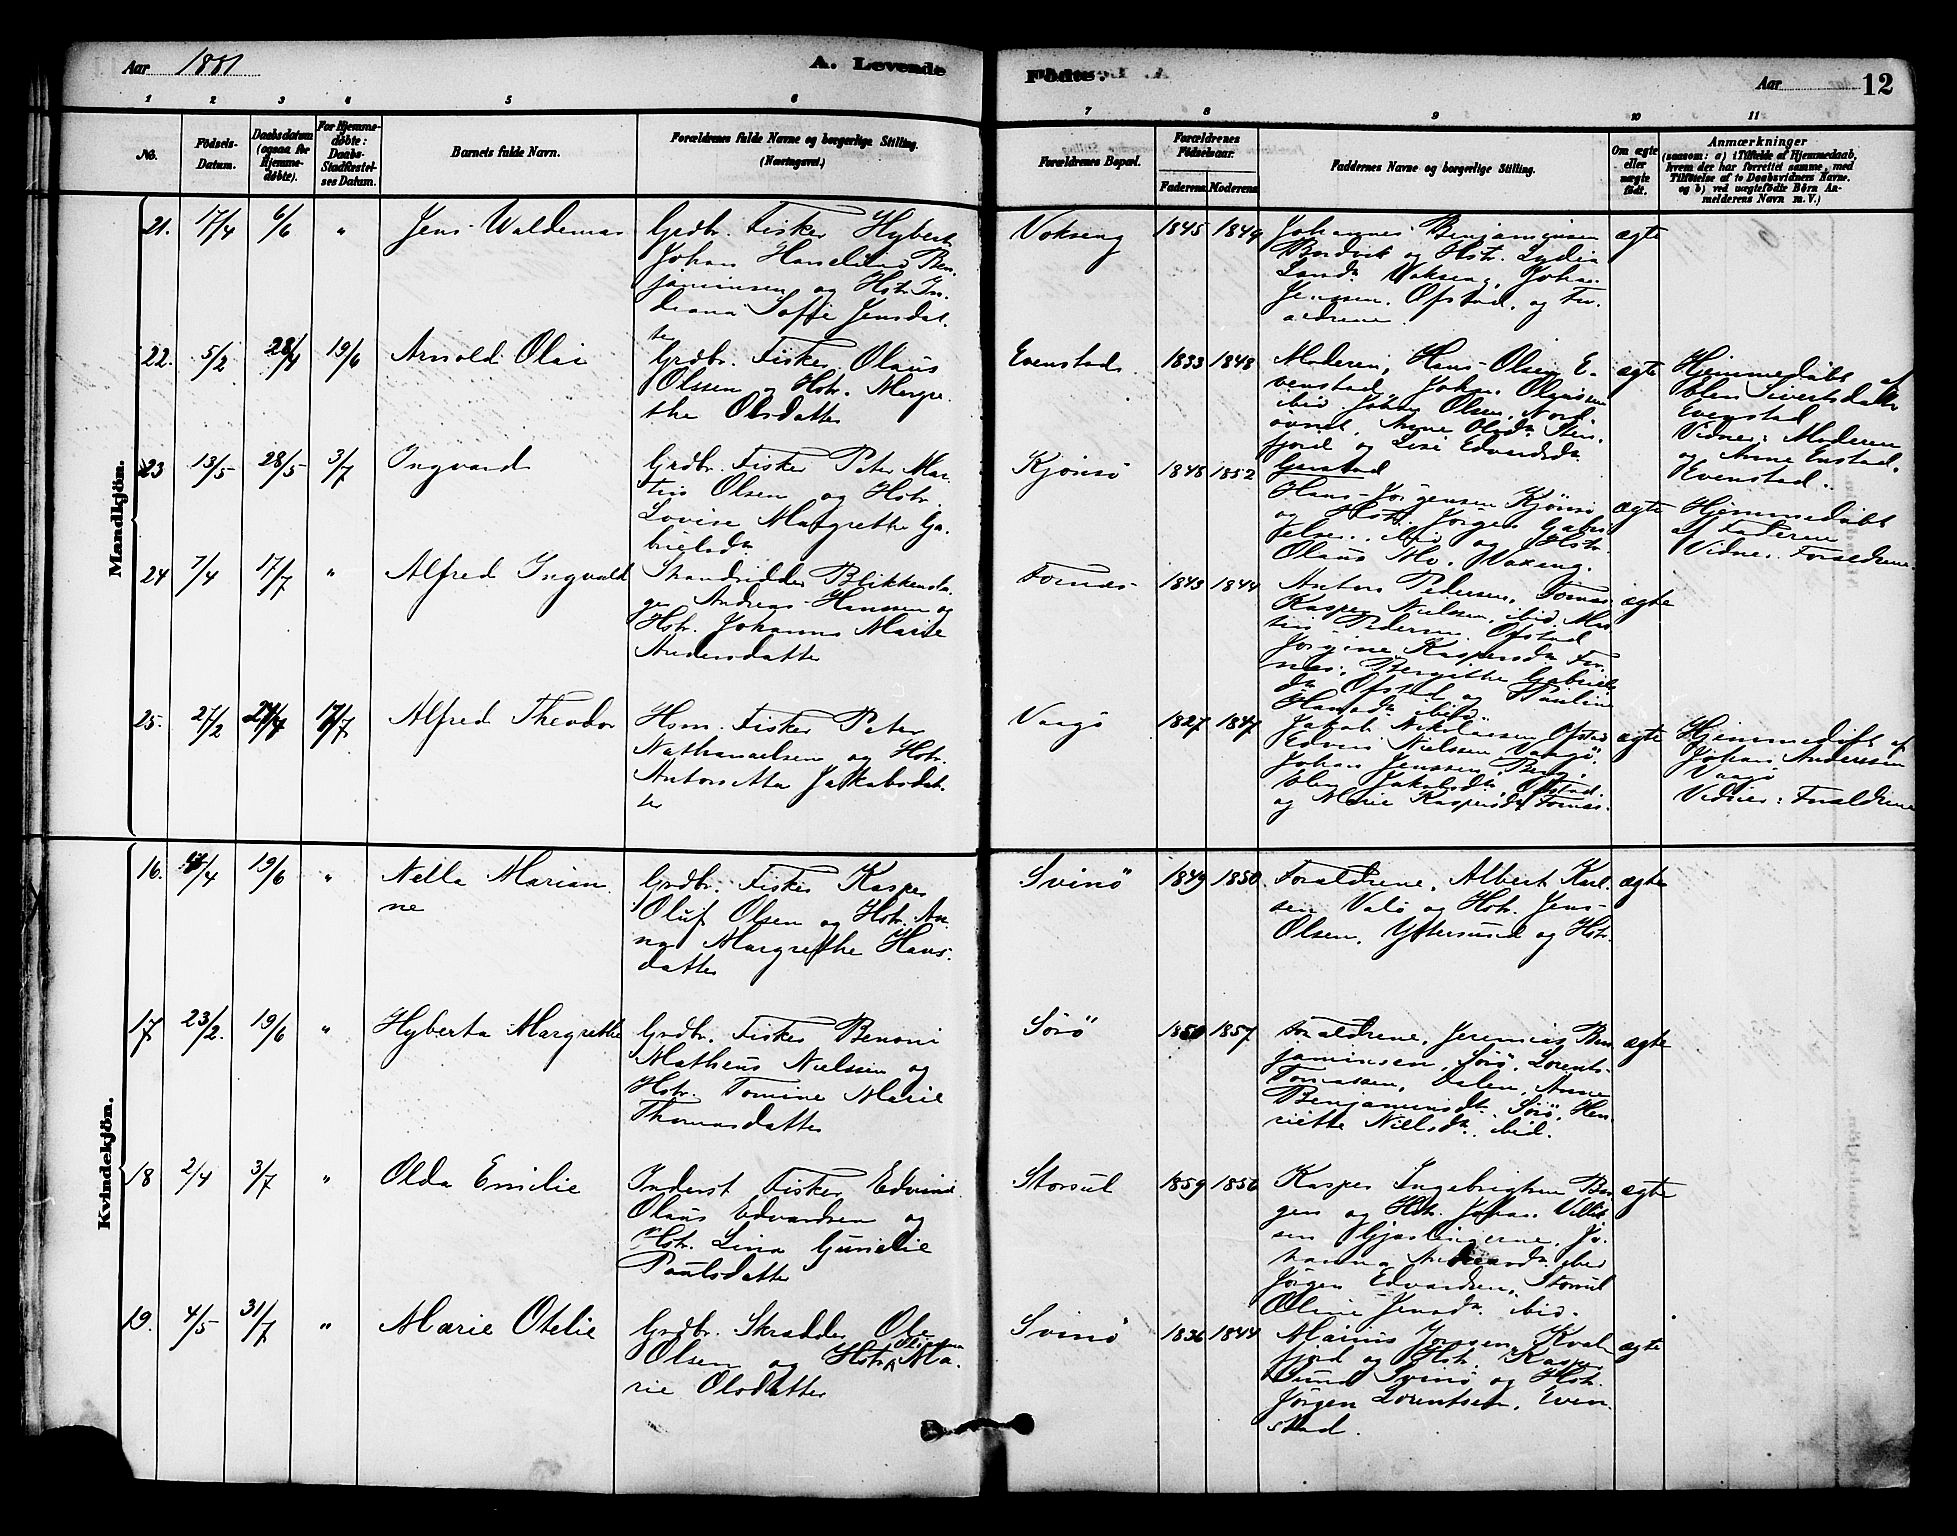 Aar 1881
A. Levende
Födte.
Aar
12
1 2 3 4 5 6 7 8 9 10 11
No.
Födsels-
Datum.
Daabsdatum
(ogsaa for
Hjemme-
döbte).
For Hjemme-
döbte:
Daabs-
Stadfæstel-
ses Datum.
Barnets fulde Navn.
Forældrenes fulde Navne og borgerlige Stilling.
(Næringsvei.)
Forældrenes Bopæl.
Forældrenes
Födselsaar.
Faderens Moderens
Faddernes Navne og borgerlige Stilling.
Om ægte
eller
uægte
födt.
Anmærkninger
(saasom: a) i Tilfælde af Hjemmedaab,
hvem der har forrettet samme, med
Tilföielse af to Daabsvidners Navne.
og b) ved uægtefödte Börn An-
melderens Navn m. V.)
Mandkjön.
21. 17/4 6/6 "
Jens Waldemar
Grdbr. Fisker Hybert
Johan Hanelius Ben-
jaminsen og Hstr. In-
diana Sofie Jensdat-
ter
Vokseng
1845 1849
Johannes Benjaminsen
og Hstr. Lydia
Vokseng, Johan
Jenssen. Ofstad, og For-
ældrene.
ægte
22. 5/2 28/4 19/6
Arnold Olai
Grdbr. Fisker Olaus
Olssen og Hstr. Margre-
the Olsdatter
Evenstad
1833 1848
Moderen, Hans Olsen E-
venstad, Johan
ibid Olsen, Nord
Anne Olsdr.
fjord og Lise Edvardsdr.
ægte
Hjemmedöbt af
Elen Sivertsdatter
Evenstad
Vidner: Moderen
og Anne
Evenstad.
23 13/5 28/5 3/7
Ingvard
Grdbr. Fisker Peter Mar-
tin Olsen og Hstr.
Lovise Margrethe Ga-
brielsdr.
Kjönsö
1848 1852
Hans Jörgensen Kjönsö
og Hstr. Jörgen Gabri-
elsen. ibid og Hstr.
Olaus Mo. Vokseng.
ægte
Hjemmedöbt
af Faderen
Vidner: Forældrene.
24 7/4 17/7 "
Alfred Ingvald
Strandsidder Blikkensla-
ger Andreas Hanssen og
Hstr. Johanna Marie
Andersdatter
Fornæs
1843 1844
Anton Pedersen, Fornæs
Kasper Nielssen, ibid, Mar-
tin Pedersen. Ofstad
Jörgine Kaspersdr. For-
næs, Bergitte Gabriels
dr. Ofstad og Pauline
Hansdr. ibid
ægte
25. 27/2 24/4 17/7
Alfred Theodor
Hsm. Fisker Peter
Nathanaelsen og Hstr.
Antonetta Jakobsdat-
ter
Vaagö
1827 1847
Jakob Nikolaisen Ofstad
Edvin Nielssen Vaagö.
Johan Jenssen, Berg,
Elen Jakobsdr. Ofstad.
og Marie Kaspersdr. Fornæs.
ægte
Hjemmedöbt af
Johan Anderssen
Vaagö
Vidner: Forældrene
Kvindekjön.
16. /4 19/6 "
Nella Marian-
ne
Grdbr. Fisker Kasper
Oluf Olsen og Hstr. An-
na Margrethe Hans-
datter
Svinö
1849 1850
Forældrene, Albert Karl-
sen Valö og Hstr. Jens
Olsen, Yttersund og Hstr.
ægte
17 23/2. 19/6 "
Hyberta Margrethe
Grdbr. Fisker Benoni
Matheus Nielssen og
Hstr. Tomine Marie
Thomasdatter
Sörö
1850 1857
Forældrene, Jeremias Ben
jaminsen, Sörö, Lorents
Tomassen, Dalen, Anne
Benjaminsdr. Sörö, Hen-
riette Nielsdr. ibid.
ægte
18 2/4 3/7 "
Olda Emilie
Inderst Fisker Edvind
Olaus Edvardsen og
Hstr. Lina Gunelie
Paulsdatter
Storsul
1859 1856
Kasper Ingebrigtsen Ber-
gen og Hstr. Johan
sen Gjæslingerne, Jo-
hanna ibid
Jörgen Edvardsen, Storsul
Oline Jensdr. ibid.
ægte
19. 4/5 31/7 "
Marie Otelie
Grdbr. Skrædder Ole
Olsen og Hstr. Ma-
rie Olsdatter
Svinö
1836 1844
Jenssen, Kval-
fjord og Hstr. Kasper
Sund Svinö og Hstr.
Jörgen Lorentsen, Even-
stad.
ægte